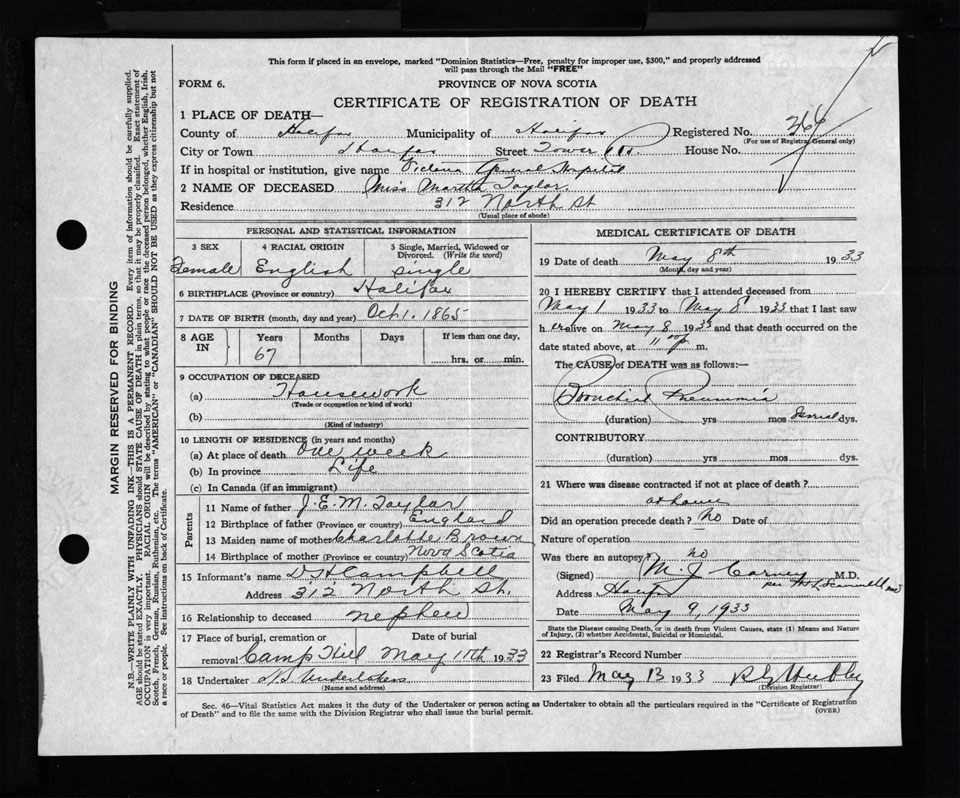 This form if placed in an envelope, marked "Dominion Statistics—Free, penalty for improper use, $300," and properly addressed
will pass through the Mail "FREE"
FORM 6. PROVINCE OF NOVA SCOTIA
CERTIFICATE OF REGISTRATION OF DEATH
1 PLACE OF DEATH—
County of Halifax Municipality of Halifax Registered No. 366
(For use of Registrar General only)
City or Town Halifax Street Tower Rd. House No.
If in hospital or institution, give name Victoria General Hospital
2 NAME OF DECEASED Miss Martha Taylor
Residence 312 North St
(Usual place of abode)
PERSONAL AND STATISTICAL INFORMATION
3 SEX 4 RACIAL ORIGIN 5 Single, Married, Widowed or Divorced. (Write the word)
Female English single
6 BIRTHPLACE (Province or country) Halifax
7 DATE OF BIRTH (month, day and year) Oct 1. 1865
8 AGE IN Years Months Days If less than one day,
67 hrs. or min.
9 OCCUPATION OF DECEASED
(a) Housework
(Trade or occupation or kind of work)
(b)
(Kind of industry)
10 LENGTH OF RESIDENCE (in years and months)
(a) At place of death One week
(b) In province Life
(c) In Canada (if an immigrant)
Parents
11 Name of father J. E. M. Taylor
12 Birthplace of father (Province or country) England
13 Maiden name of mother Charlotte Brown
14 Birthplace of mother (Province or country) Nova Scotia
15 Informant's name D H Campbell
Address 312 North St.
16 Relationship to deceased nephew
17 Place of burial, cremation or Date of burial
removal Camp Hill May 11th 1933
18 Undertaker N S Undertakers
(Name and address)
MEDICAL CERTIFICATE OF DEATH
19 Date of death May 8th 1933
(Month, day and year)
20 I HEREBY CERTIFY that I attended deceased from
May 1 1933 to May 8 1933 that I last saw
h er alive on May 8 1933 and that death occurred on the
date stated above, at 11 p m.
The CAUSE of DEATH was as follows:—
Bronchial Pneumonia
(duration) yrs mos Several dys.
CONTRIBUTORY
(duration) yrs mos dys.
21 Where was disease contracted if not at place of death?
at home
Did an operation precede death? no Date of
Nature of operation
Was there an autopsy? no
(Signed) M. J. Carney M.D.
Address Halifax per
Date May 9, 1933
State the Disease causing Death, or in death from Violent Causes, state (1) Means and Nature
of Injury, (2) whether Accidental, Suicidal or Homicidal.
22 Registrar's Record Number
23 Filed May 13 1933
(Division Registrar)
Sec. 46—Vital Statistics Act makes it the duty of the Undertaker or person acting as Undertaker to obtain all the particulars required in the "Certificate of Registration
of Death" and to file the same with the Division Registrar who shall issue the burial permit. (OVER)
MARGIN RESERVED FOR BINDING
N.B.—WRITE PLAINLY WITH UNFADING INK—THIS IS A PERMANENT RECORD. Every item of information should be carefully supplied.
AGE should be stated EXACTLY. PHYSICIANS should STATE CAUSE OF DEATH in plain terms, so that it may be properly classified. Exact statement of
OCCUPATION is very important. RACIAL ORIGIN will be described by stating to what people or race the deceased person belonged, whether English, Irish,
Scotch, French, German, Russian, Ruthenian, etc. The terms "AMERICAN" or "CANADIAN" SHOULD NOT BE USED as they express citizenship but not
a race or people. See instructions on back of Certificate.